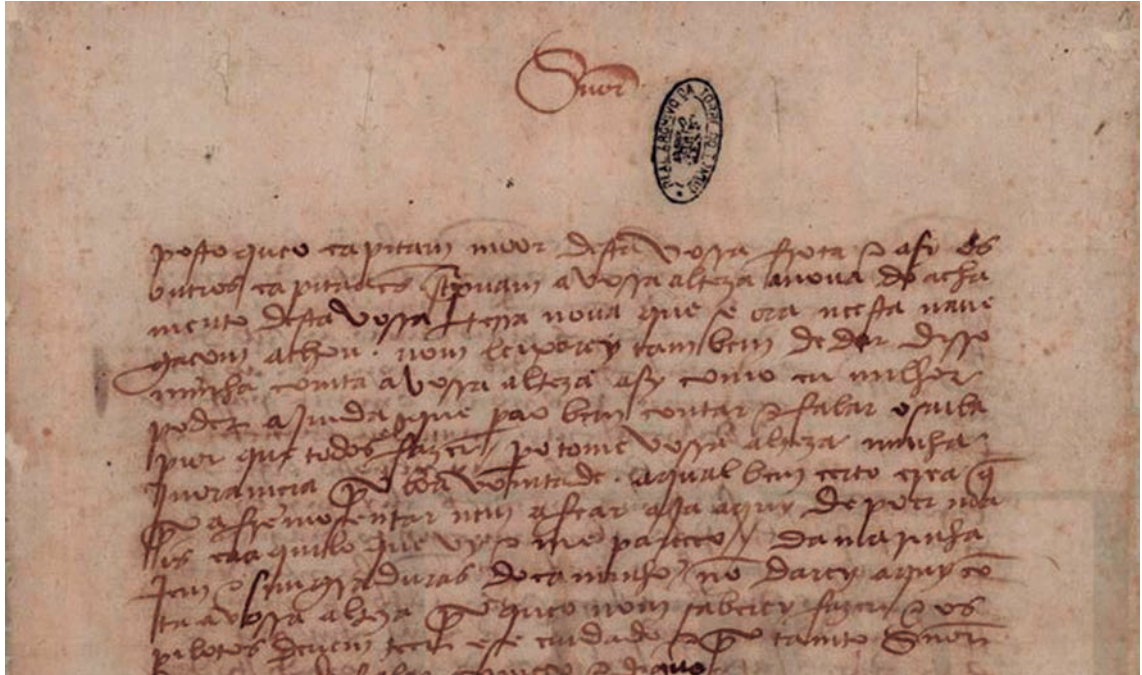 Snor
REAL ARCHIVO DA TORRE DO TOMBO
posto queo capitam moor desta vossa frota e asy os
outros capitaães screpuam a vossa alteza a noua do acha
mento desta vossa terra noua que se ora neesta naue
gaçom achou. nom leixarey tambem de dar disso
minha comta avossa alteza asy como eu milhor
poder ajmda que pao bem contar e falar o saiba
pior que todos fazer / po tome vossa alteza minha
jnoramçia por boa vomtade. aqual bem çerto crea q̃
por afremosentar nem afear aja aquy de poer ma
is ca aquilo que vy e me pareçeo / da marinha
jem e simgraduras do caminho nõ darey aquy cõ
ta a vossa alteza por queo nom saberey fazer e os
pilotos deuem teer ese cuidado e por tamto Snor
do que ey de falar começo e diguo